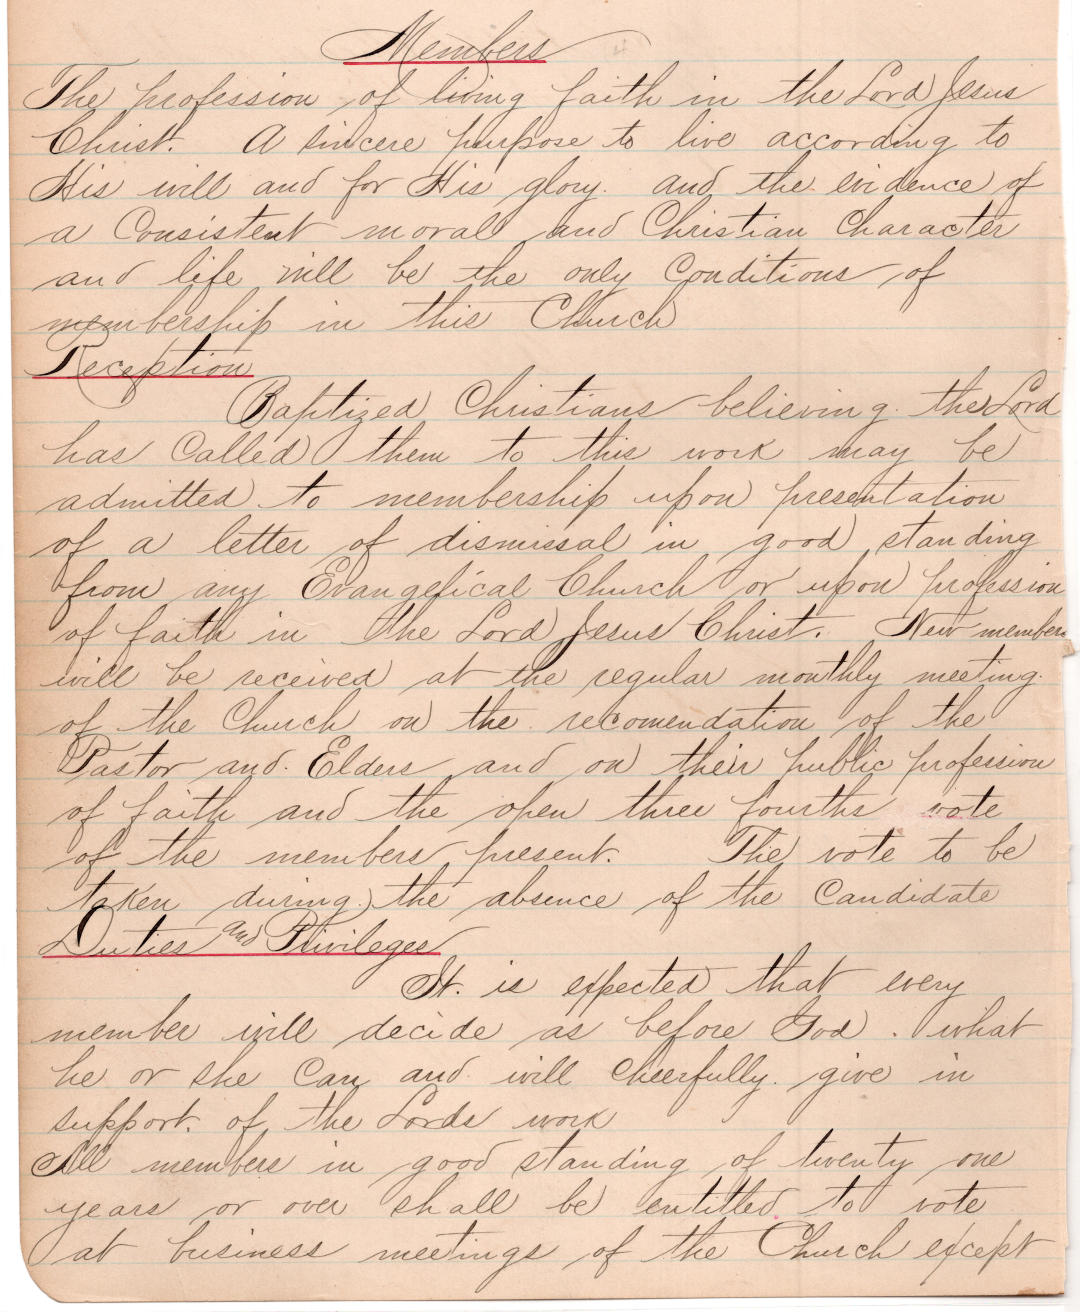 Members
The profession of living faith in the Lord Jesus
Christ. A sincere purpose to live according to
His will and for His glory. and the evidence of
a Consistent moral and Christian Character
and life will be the only Conditions of
membership in this Church
Reception
Baptized Christians believing the Lord
has Called them to this work may be
admitted to membership upon presentation
of a letter of dismissal in good standing
from any Evangelical Church or upon profession
of faith in the Lord Jesus Christ. New members
will be received at the regular monthly meeting
of the Church on the recomendation of the
Pastor and Elders and on their public profession
of faith and the open three fourths vote
of the members present. The vote to be
taken during the absence of the Candidate
Duties and Privileges
It is expected that every
member will decide as before God. what
he or she Can and will cheerfully give in
support of the Lords work
All members in good standing of twenty one
years or over shall be entitled to vote
at business meetings of the Church except